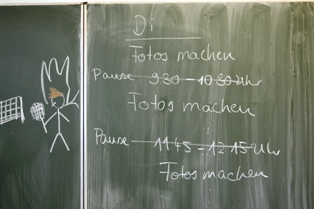 Di
Fotos machen
Pause 930 - 1030 Uhr
Fotos machen
Pause 1145 - 1215 Uhr
Fotos machen